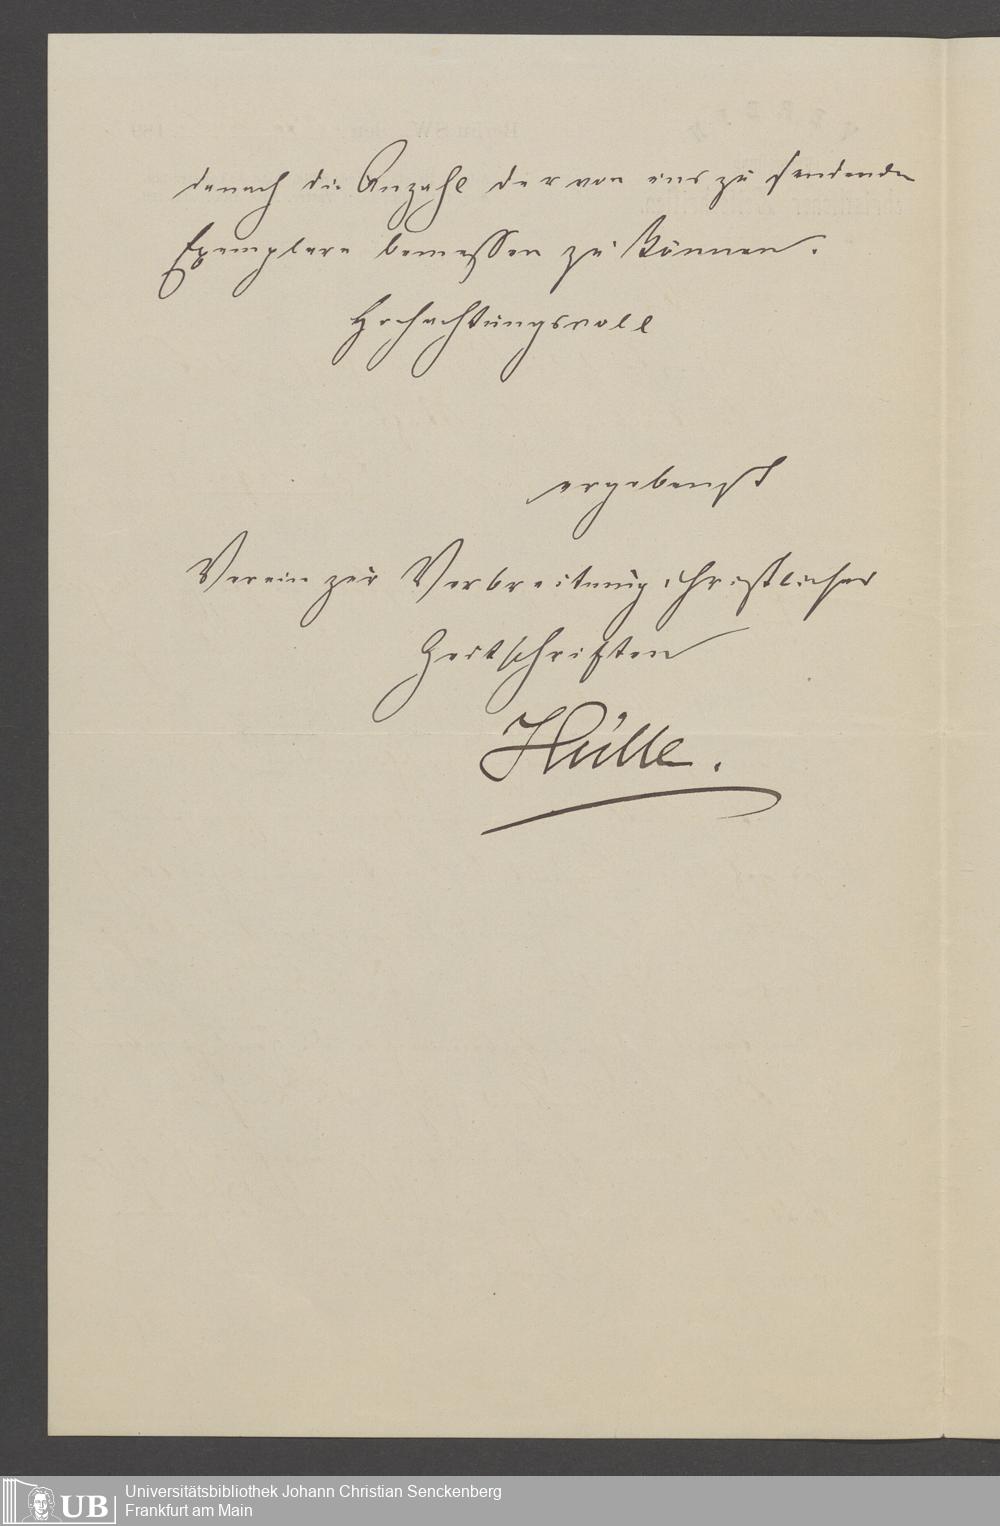 danach die Anzahl der von uns zu sendenden
Exemplare bemessen zu können.
Hochachtungsvoll
ergebenst
Verein zur Verbreitung christlicher
Zeitschriften
Hülle.
UB
Universitätsbibliothek Johann Christian Senckenberg
Frankfurt am Main